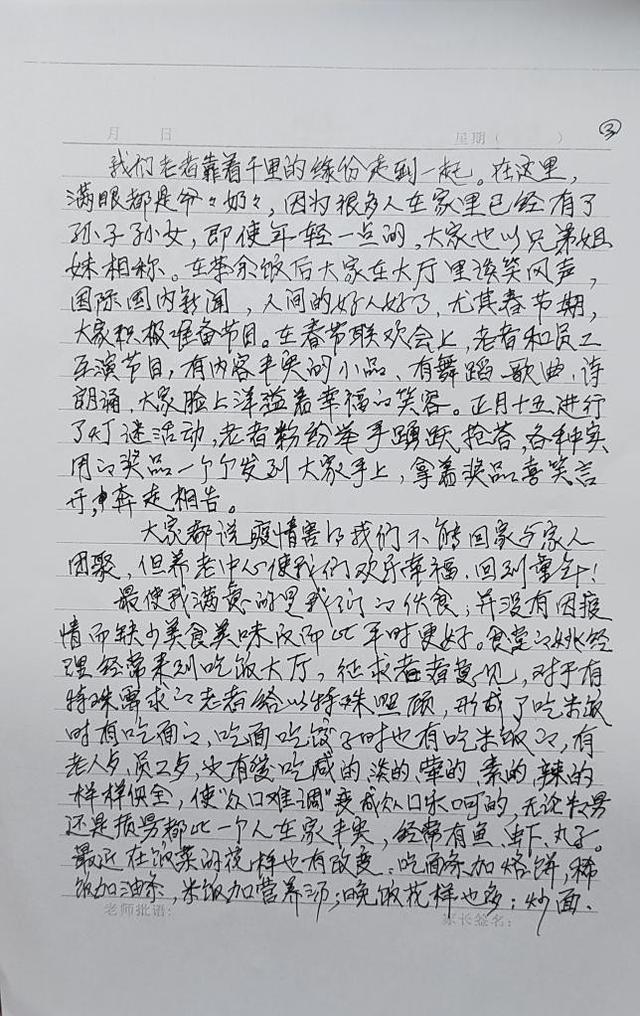 月 日 星期（ ） ③
我们老者靠着千里的缘份走到一起。在这里，
满眼都是爷々奶々，因为很多人在家里已经有了
孙子孙女，即使年轻一点的，大家也以兄弟姐
妹相称。在茶余饭后大家在大厅里谈笑风声，
国际国内新闻，人间的好人好了，尤其春节期，
大家积极准备节目。在春节联欢会上，老者和员工
互演节目，有内容丰实的小品、有舞蹈、歌曲、诗
朗诵，大家脸上洋溢着幸福的笑容。正月十五进行
了灯谜活动，老者粉纷举手踊跃抢答，各种实
用的奖品一个个发到大家手上，拿着奖品喜笑言
开，奔走相告。
大家都说疫情害的我们不能回家与家人
团聚，但养老中心使我们欢乐幸福，回到童年！
最使我满意的是我们的伙食，并没有因疫
情而缺少美食美味反而比平时更好。食堂的姚经
理经常来到吃饭大厅，征求老者意见，对于有
特殊需求的老者给以特殊照顾，形成了吃米饭
时有吃面的、吃面吃饺子时也有吃米饭的，有
老人多，员工多，没有爱吃咸的、淡的、荤的、素的、辣的
样样俱全，使“众口难调”变成众口乐呵的，无论
还是 都比一个人在家丰实，经常有鱼、虾、丸子。
最近在饭菜的花样也有改变，吃面条加烙饼，稀
饭加油条，米饭加营养汤；晚饭花样也多：炒面、
老师批语： 家长签名：